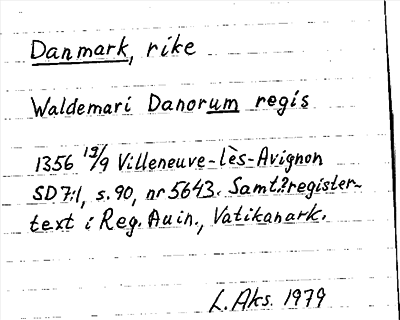 Danmark, rike
Waldemari Danorum regis
1356 19/9 Villeneuve-lès-Avignon
SD 7:1, s. 90, nr 5643. Samt? register-
text i Reg. Auin., Vatikanark.
L. Aks. 1979